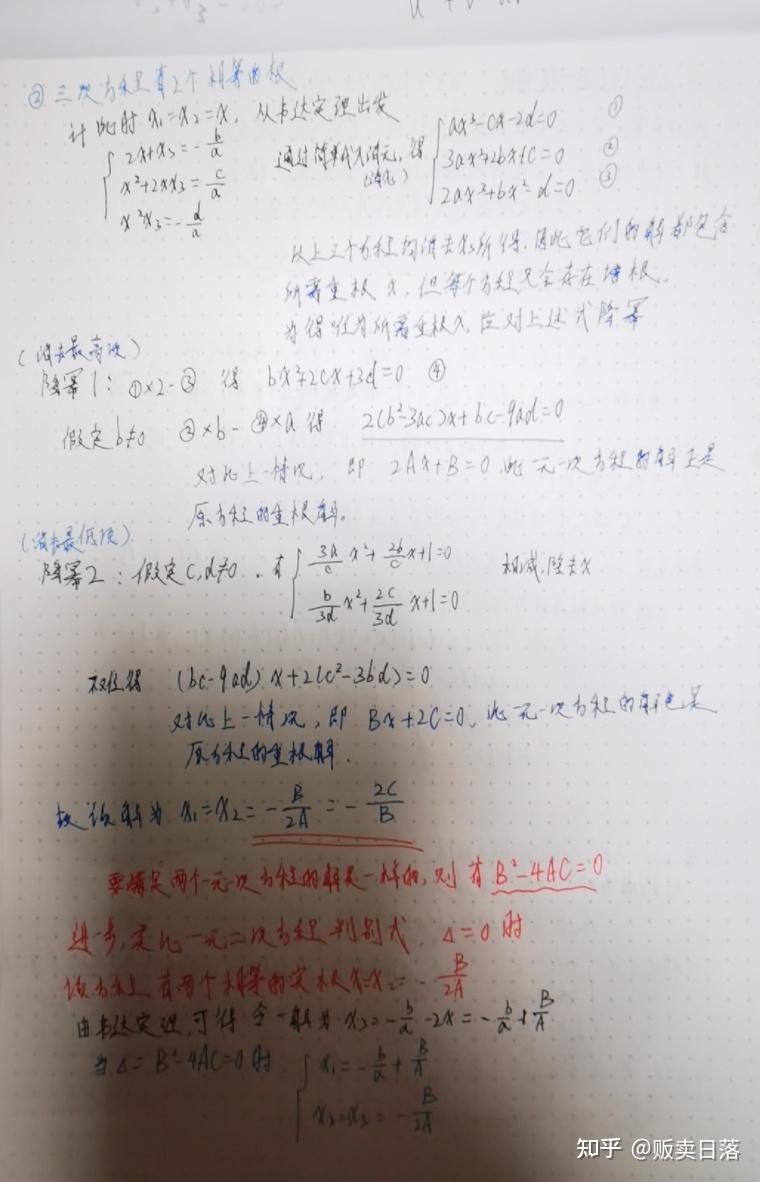 ② 三次方程有2个相等的根
计此时 x₁=x₂=x, 从韦达定理出发
{ 2x+x₃=-b/a
x²+2xx₃=c/a
x²x₃=-d/a
通过简单代入消元, 得
(消x₃)
{ ax³-cx-2d=0 ①
3ax²+2bx+c=0 ②
2ax³+bx²-d=0 ③
以上三个方程均消去x₃所得, 因此它们的解都包含
所需重根 x, 但每个方程又会存在增根,
为得唯一为所需重根x, 应对上述式降幂
(消去最高次)
降幂1: ①×2-③ 得 bx²+2cx+3d=0 ④
假定b≠0 ②×b-④×a 得 2(b²-3ac)x+bc-9ad=0
对比上一情况, 即 2Ax+B=0 此一元一次方程的解正是
原方程的重根解。
(消去最低项)
降幂2: 假定c,d≠0. 有 { 3a/c x²+2b/c x+1=0
b/3d x²+2c/3d x+1=0
相减, 除去x
(bc-9ad)x+2(c²-3bd)=0
对比上一情况, 即 Bx+2C=0, 此一元一次方程的解也是
原方程的重根解.
故该解为 x₁=x₂=-B/2A=-2C/B
要满足两个一元一次方程的解是一样的, 则有 B²-4AC=0
进一步, 类比一元二次方程判别式, Δ=0时
该方程有两个相等的实根x₁=x₂=-B/2A
由韦达定理, 可得令一解为 x₃=-b/a-2x=-b/a+B/A
当Δ=B²-4AC=0时 { x₁=-b/a+B/A
x₂=x₃=-B/2A
知乎 @贩卖日落